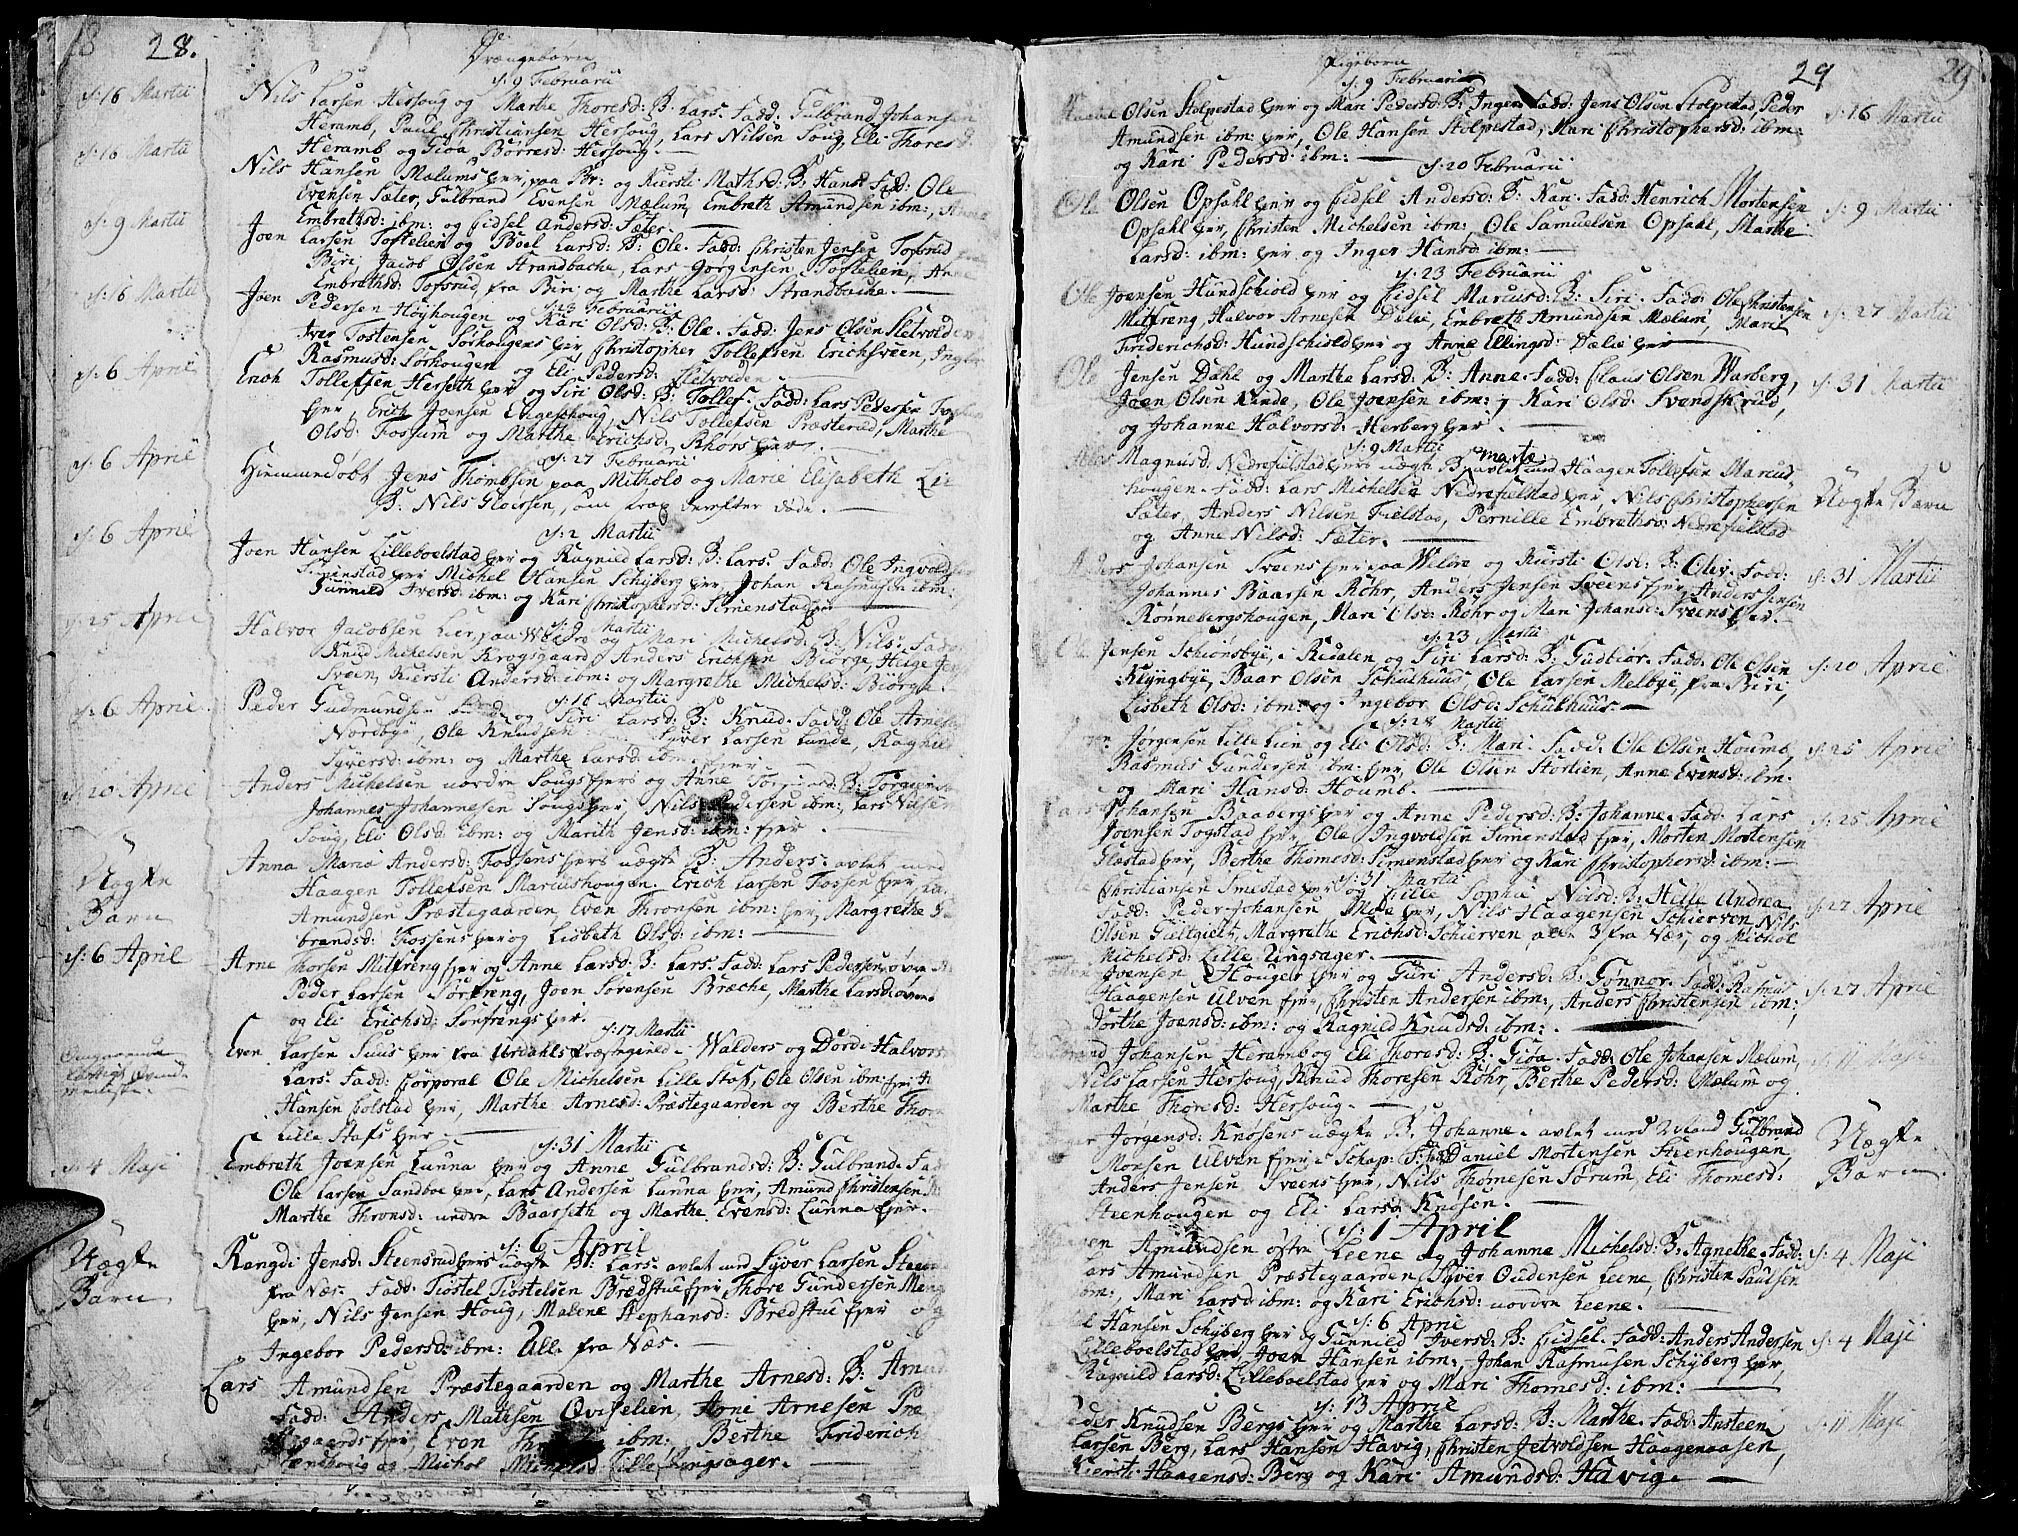 28.
Drengebørn
d: 9 Februarii
d: 16 Martii
Nils Larsen Hersoug og Marthe Thoresd: B: Lars. Fadd: Gulbrand Johansen
Heramb, Paul Christiansen Hersoug, Lars Nilsen Soug, Eli Thoresd:
Heramb og Gioa Børresd: Hersoug.
d: 16 Martii
Nils Hansen Mælums Eier, paa Br: og Kiersti Mathsd: B: Hans. Fadd: Ole
Evensen Sæter, Gulbrand Evensen Mælum, Embreth Amundsen ibm:, Anne
Embrethsd: ibm: og Eidsel Andersd: Sæter.
d: 9 Martii
Joen Larsen Tostelien og Boel Larsd: B: Ole. Fadd: Christen Jensen Tofsrud
Biri, Jacob Olsen Strandbache, Lars Jørgensen Tostelien, Anne
Embrethsd: Tofsrud, fra Biri og Marthe Larsd: Strandbache.
d: 23 Februarii
d: 16 Martii
Joen Pedersen Høyhougen og Kari Olsd: B: Ole. Fadd: Jens Olsen Sletvolden
Iver Tostensen Sørhougens Eier, Christopher Tollefsen Erichsveen, Inger
Rasmusd: Sørhougen og Eli Pedersd: Sletvolden
d: 6 April
Erich Tollefsen Herseth Eier og Siri Olsd: B: Tollef. Fadd: Lars Pedersen
Eier, Erich Joensen Engeschoug, Nils Tollefsen Præsterud, Marthe
Olsd: Fossum og Marthe Erichsd: Rhors Eier.
d: 27 Februarii
d: 6 April
Hiemmedøbt Jens Thombsen paa Mithold og Marie Elisabeth
B: Nils Gloersen, som strax derefter døde.
d: 2 Martii
d: 6 April
Joen Hansen Lilleboelstad Eier og Ragnild Larsd: B: Lars. Fadd: Ole Ingvoldsen
Simenstad Eier, Michel Hansen Schyberg Eier, Johan Rasmusen ibm:
Gunnild Iversd: ibm: og Kari Christophersd: Simenstad Eier
d: 9 Martii
d: 25 April
Halvor Jacobsen Lier, paa Weldre og Mari Michelsd: B: Nils. Fadd:
Knud Michelsen Krogsgaard, Anders Erichsen Biørge, Helge
Sveen, Kiersti Andersd: ibm: og Margrethe Michelsd: Biørge.
d: 16 Martii
d: 6 April
Peder Gudmundsen og Siri Larsd: B: Knud. Fadd: Ole Arnesen
Nordbye, Ole Knudsen Syver Larsen Lunde, Ragnild
Syversd: ibm: og Marthe Larsd: ibm: Eier
d: 20 April
Anders Michelsen nordre Sougs Eier og Anne B: Torger.
Johannes Johannesen Sougs Eier, Nils Pedersen ibm:, Lars Nilsen
Soug, Eli Olsd: ibm: og Marith Jensd: ibm: Eier.
Uægte
Barn
Anna Maria Andersd: Fossens Eiers uægte B: Anders, avlet med
Haagen Tollefsen Marcushougen. Erich Larsen Fossen Eier,
Amundsen Præstegaarden, Even Thronsen ibm: Eier, Margrethe
brandsd: Fossens Eier og Lisbeth Olsd: ibm:
d: 6 April
Arne Thorsen Mitfreng Eier og Anne Larsd: B: Lars. Fadd: Lars Pedersen øvre
Peder Larsen Sørfreng, Joen Sørensen Bræche, Marthe Larsd:
og Eli Erichsd: Sørfrengs Eier.
d: 17 Martii
Even Larsen Suus Eier fra Urdahls Præstegield i Walders og Dordi Halvors
Lars. Fadd: Corporal Ole Michelsen Lille Staf, Ole Olsen ibm: Eier
Hansen Colstad Eier, Marthe Arnesd: Præstegaarden og Berthe
Lille Stafs Eier.
d: 31 Martii
d: 4 Maji
Embreth Joensen Lunna Eier og Anne Gulbrandsd: B: Gulbrand. Fadd:
Ole Larsen Sandboe Eier, Lars Andersen Lunna Eier, Amund Christensen
Marthe Thronsd: nedre Baarseth og Marthe Evensd: Lunna Eier.
d: 6 April
Uægte
Barn
Rangdi Jensd: Steensrud Eiers uægte B: Lars. avlet med Syver Larsen
fra Næs. Fadd: Tostel Tostelsen Bredstue Eier, Thore Gundersen
Eier, Nils Jensen Houg, Malene Stephansd: Bredstue Eier og
Ingebor Pedersd: ibm: Alle fra Næs.
Lars Amundsen Præstegaarden og Marthe Arnesd: B:
Fadd: Anders Mathsen Qviselien, Arne Arnesen
Even ibm:, Berthe Friderich
og Michel Lille Ringsager.
29
Pigebørn
d: 9 Februarii
Olsen Stolpestad Eier og Mari Pedersd: B: Inger. Fadd: Jens Olsen Stolpestad, Peder
Amundsen ibm: Eier, Ole Hansen Stolpestad, Mari Christophersd: ibm:
og Kari Pedersd: ibm:
d: 16 Martii
d: 20 Februarii
Ole Olsen Opsahl Eier og Eidsel Andersd: B: Kari. Fadd: Henrich Mortensen
Opsahl Eier, Christen Michelsen ibm:, Ole Samuelsen Opsahl, Marthe
Larsd: ibm: Eier og Inger Hansd: ibm:
d: 9 Martii
d: 23 Februarii
Ole Joensen Hundschiold Eier og Eidsel Marcusd: B: Siri. Fadd: Ole Christensen
Mitfreng, Halvor Arnesen Dælie, Embreth Amundsen Mælum, Mari
Friderichsd: Hundschiold Eier og Anne Ellingsd: Dælie Eier
d: 27 Martii
Ole Jensen Dæhl og Marthe Larsd: B: Anne. Fadd: Claus Olsen Warberg,
Joen Olsen Linde, Ole Joensen ibm: Kari Olsd: Svendskrud,
og Johanne Halvorsd: Herberg Eier.
d: 31 Martii
d: 9 Martii
Magnusd: Nedrefielstad Eiers uægte B: Marte avlet med Haagen Tollefsen Marcus-
hougen. Fadd: Lars Michelsen Nedrefielstad Eier, Nils Christophersen
Sæter, Anders Nilsen Fielstad, Pernille Embrethsd: Nedrefielstad
og Anne Nilsd: Sæter.
Uægte Barn
Anders Johansen Sveens Eier paa Weldre og Kiersti Olsd: B: Oliv. Fadd:
Johannes Baarsen Røhr, Anders Jensen Sveens Eier, Anders Jensen
Rønnebergshougen, Mari Olsd: Røhr og Mari Johansd: Sveens Eier.
d: 31 Martii
d: 23 Martii
Ole Jensen Schiønsbye, i Redalen og Siri Larsd: B: Gudbior. Fadd: Ole Olsen
Klyngbye, Baar Olsen Schulhuus, Ole Larsen Melbye, fra Biri,
Lisbeth Olsd: ibm: og Ingebor Olsd: Schulhuus.
d: 20 April
d: 28 Martii
Jørgensen Lille Lien og Eli Olsd: B: Mari. Fadd: Ole Olsen Houmb,
Rasmus Gundersen ibm: Eier, Ole Olsen Stortien, Anne Evensd: ibm:
og Mari Hansd: Houmb.
d: 25 April
Lars Johansen Baabergs Eier og Anne Pedersd: B: Johanne. Fadd: Lars
Joensen Togstad Eier, Ole Ingvoldsen Simenstad Eier, Morten Mortensen
Glestad Eier, Berthe Thomesd: Simenstad Eier og Kari Christophersd: ibm:
d: 25 April
d: 31 Martii
Christiansen Smestad Eier og Sille Sophia Nilsd: B: Hille Andrea
Fadd: Peder Johansen Eier, Nils Haagensen Schierven, Nils
Olsen Gieltqviet, Margrethe Erichsd: Schierven alle 3 fra Næs, og Michel
Michelsd: Lille Ringsager.
d: 27 April
Joensen Houger Eier og Guri Andersd: B: Gønnor. Fadd: Rasmus
Haagensen Ulven Eier, Christen Andersen ibm:, Anders Christensen ibm:,
Dorthe Joensd: ibm: og Ragnild Knudsd: ibm:.
d: 27 April
Johansen Heramb og Eli Thoresd: B: Gioa. Fadd: Ole Johansen Mælum,
Nils Larsen Hersoug, Knud Thoresen Røhr, Berthe Pedersd: Mælum og
Marthe Thoresd: Hersoug.
d: 11 Maji
Jørgensd: Knøsens uægte B: Johanne avlet med Gulbrand
Monsen Ulven Eier Daniel Mortensen Steenhougen,
Anders Jensen Sveens Eier, Nils Thomesen Sørum, Eli Thomesd:
Steenhougen og Eli Larsd: Knøsen.
Uægte
Barn
d: 1 April
Amundsen østre Leene og Johanne Michelsd: B: Agnethe. Fadd:
Lars Amundsen Præstegaarden, Syver Oudensen Leene, Christen Paulsen
ibm:, Mari Larsd: ibm: og Kari Erichsd: nordre Leene.
d: 4 Maji
d: 6 April
Hansen Schyberg Eier og Gunnild Iversd: B: Eidsel. Fadd: Anders Andersen
Lilleboelstad Joen Hansen ibm:, Johan Rasmusen Schyberg Eier,
Ragnild Larsd: Lilleboelstad Eier og Mari Thomesd: ibm:
d: 4 Maji
d: 13 April
Peder Knudsen Bergs Eier og Marthe Larsd: B: Marthe. Fadd: Austeen
Larsen Berg, Lars Hansen Havig, Christen Jetvoldsen Haagenaasen,
Kiersti Haagensd: Berg og Kari Amundsd: Havig.
d: 11 Maji